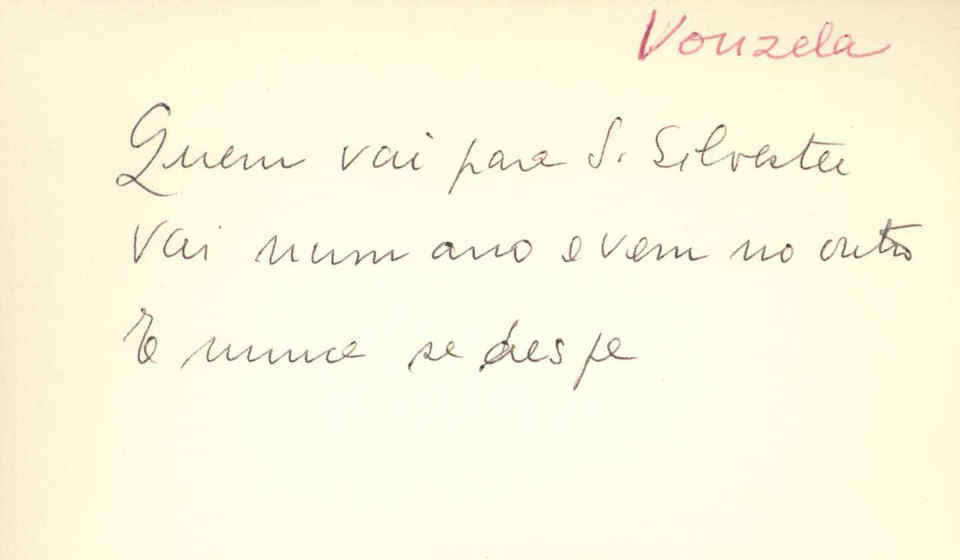 Vouzela
Quem vai para S. Silvestre
Vai num ano e vem no outro
E nunca se despe